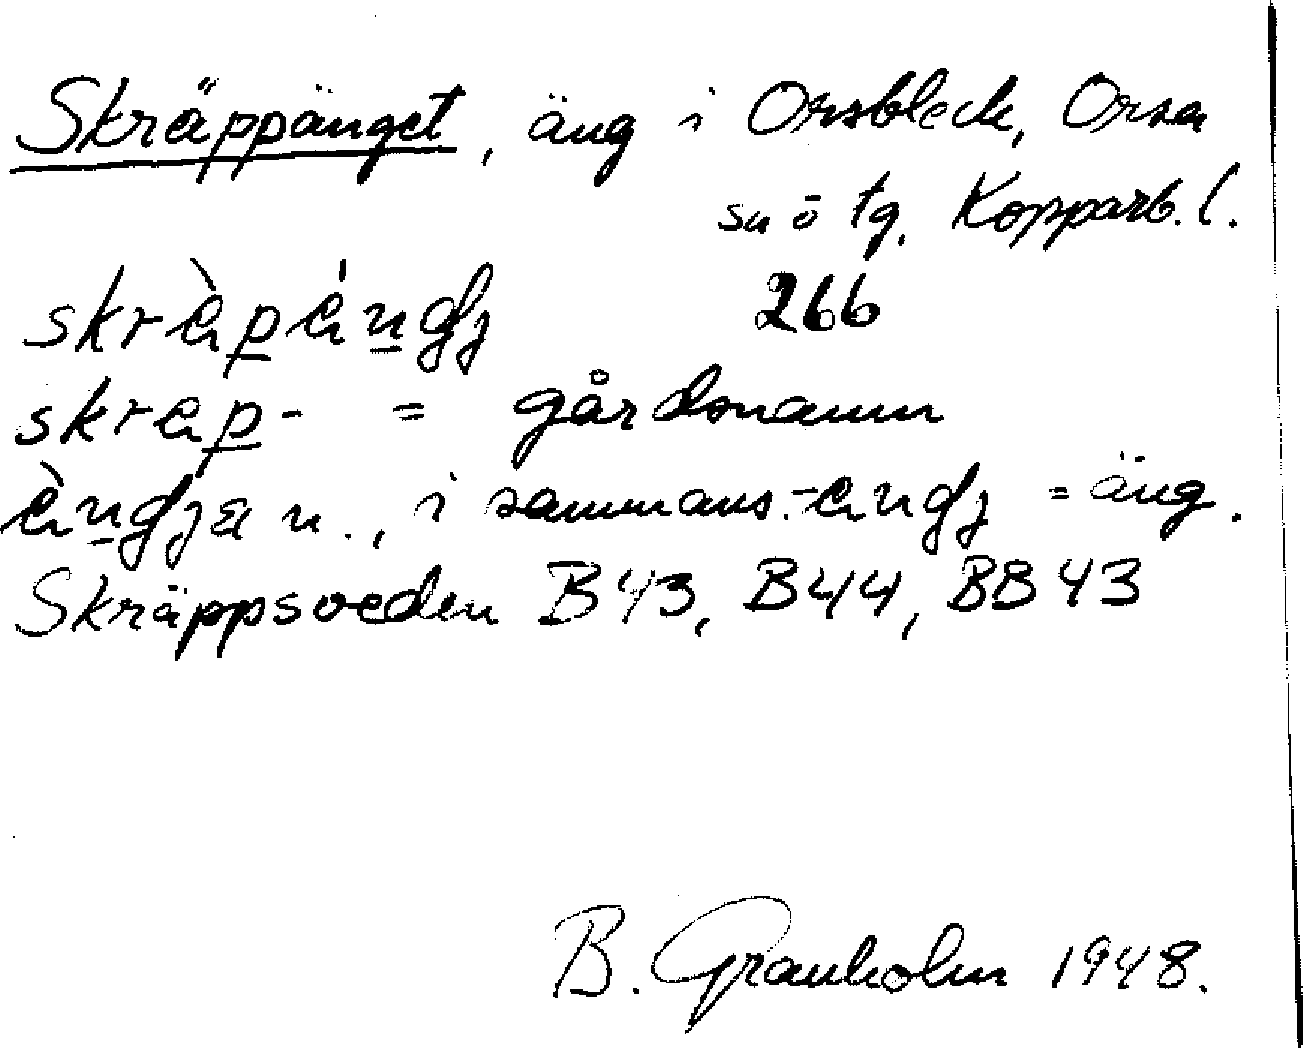 Skräppänget, äng i Orsbleck, Orsa
sn ö tg. Kopparb. l.
skrὲpέndj 266
skrɛp- = gårdsnamn
ὲndjan., i sammans. -ɛndj = äng.
Skräppsveden B43, B44, BB43
B. Granholm 1948.